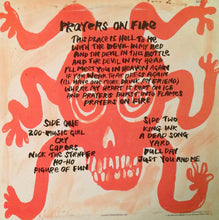 PRAYERS ON FIRE
THIS PLACE IS HELL TO ME
WITH THE DEVIL IN MY BED
AND THE DEVIL IN THIS BOTTLE
AND THE DEVIL IN MY HEAD
ALMOST YOU IN HEAVEN AGAIN
IF YOU WEAR THAT OFF AGAIN
I'LL HAVE ONE MORE DRINK, MY FRIEND)
WHERE MY HEART IS KEPT ON ICE
AND PRAYERS BURST INTO FLAMES
PRAYERS ON FIRE
SIDE ONE
ZOO-MUSIC GIRL
CRY
CAPERS
NICK THE STRIPPER
HO-HO
FIGURE OF FUN
SIDE TWO
KING INK
A DEAD SONG
YARD
DULL DAY
JUST YOU AND ME